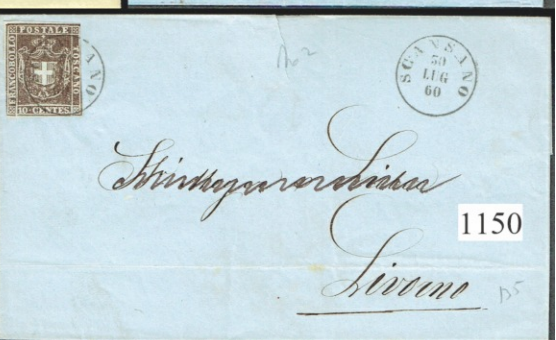 FRANCOBOLLO
POSTALE
TOSCANO
10 CENTES
ANO
A62
SCANSANO
30
LUG
60
1150
Livorno
B5